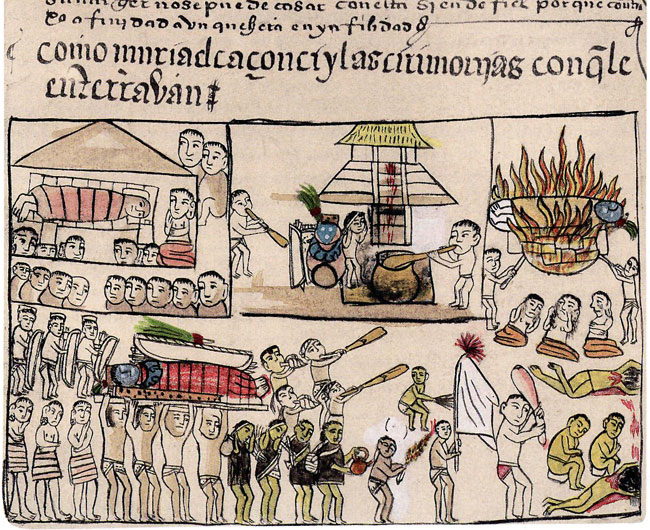 ger no se pue de casar con ella si en de fiel por que contra
xo a finidad a vn que heta en yn fi lidad
como muria el caçonci y las cirimonjas con q̃ le
enterravan